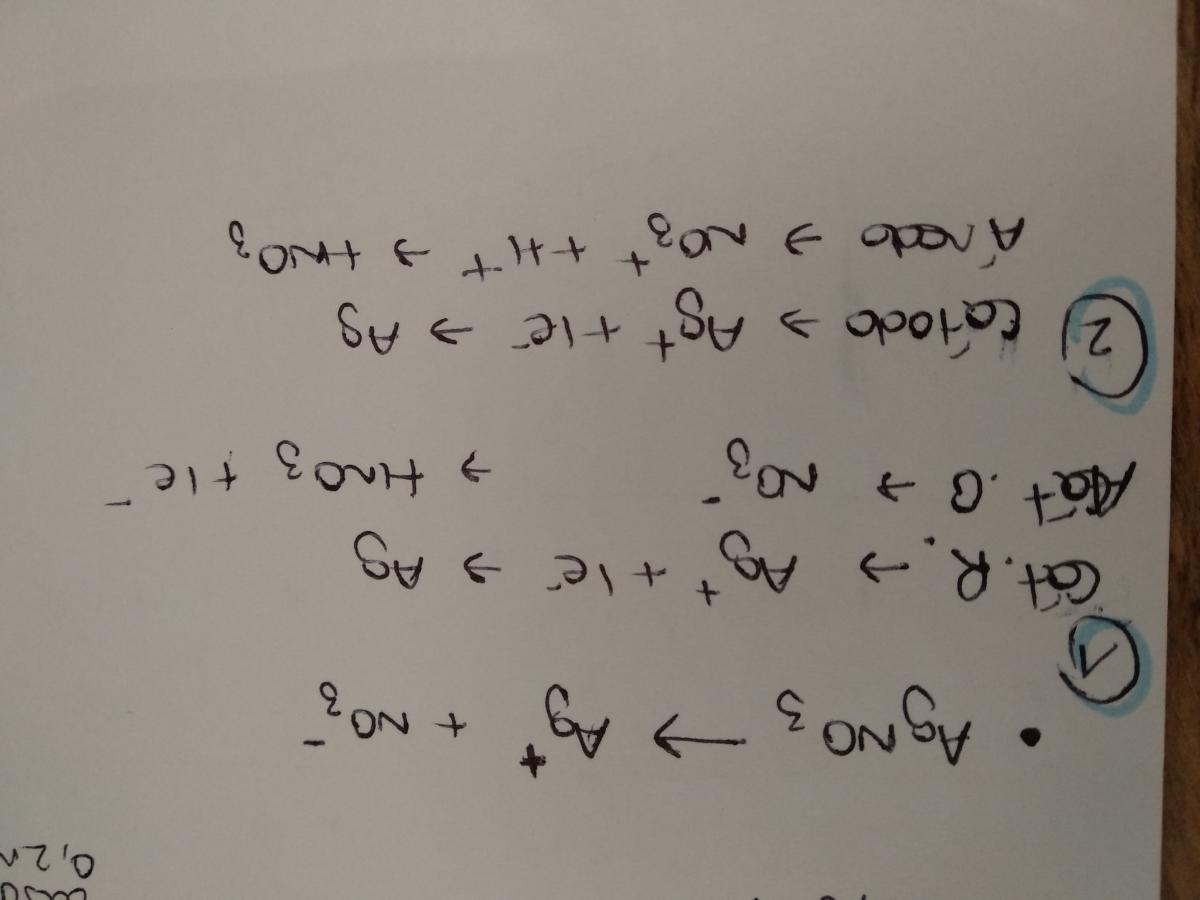 0,2
• AgNO₃ → Ag⁺ + NO₃⁻
①
Cat. R. → Ag⁺ + 1e⁻ → Ag
Aat. O → NO₃⁻ → HNO₃ + 1e⁻
② Cátodo → Ag⁺ + 1e⁻ → Ag
Ánodo → NO₃⁺ + H⁺ → HNO₃